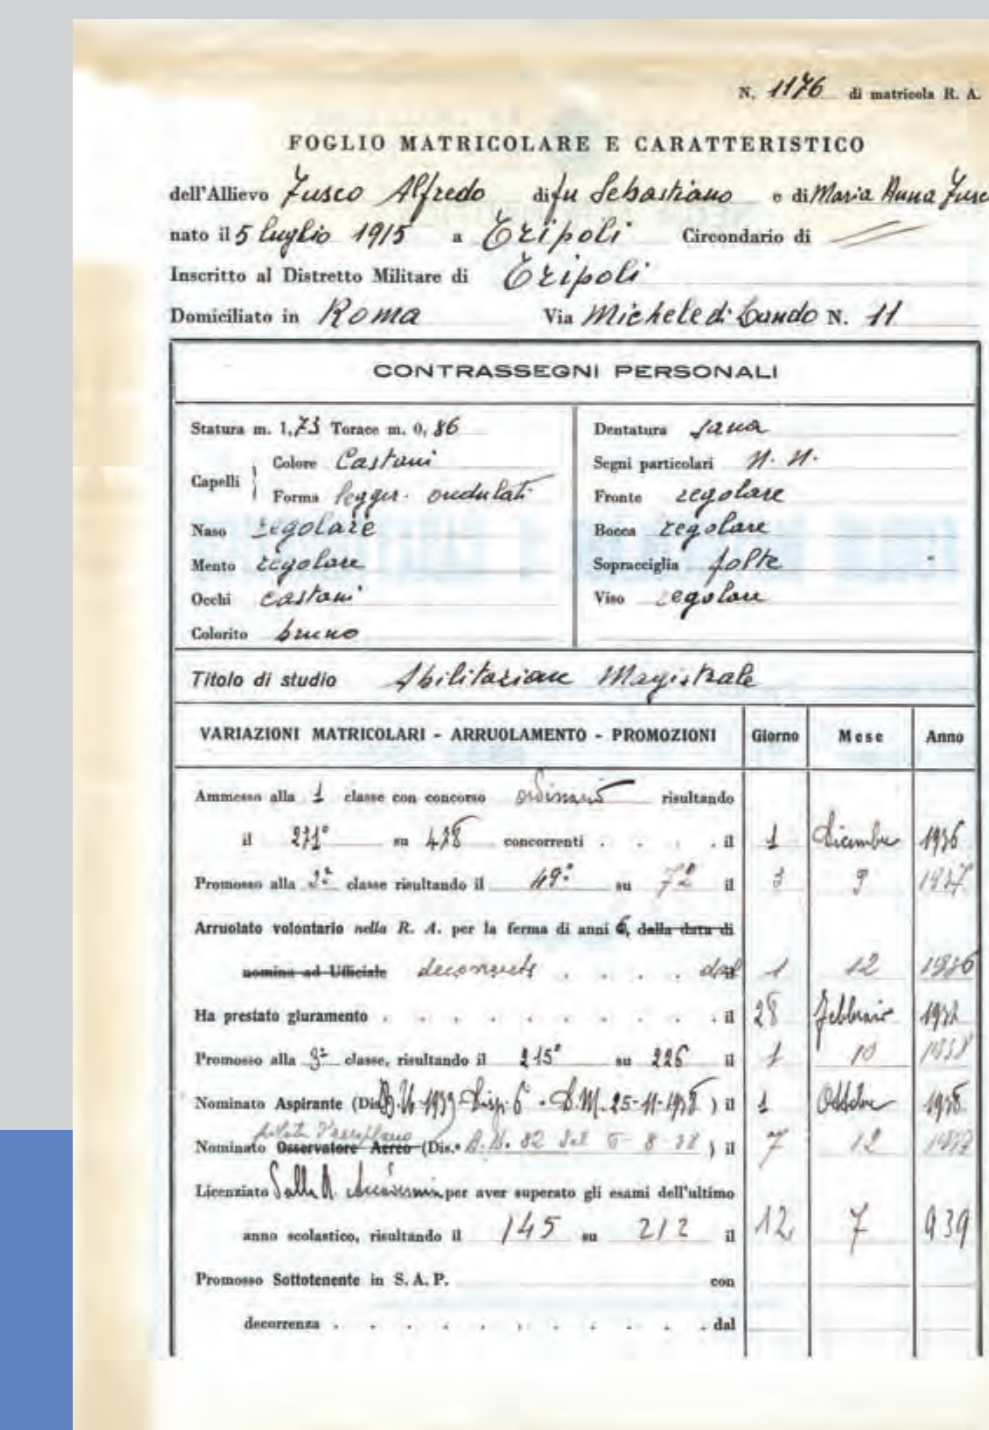 N. 1176 di matricola R. A.
FOGLIO MATRICOLARE E CARATTERISTICO
dell'Allievo Fusco Alfredo di fu Sebastiano e di Maria Anna Fusc
nato il 5 luglio 1915 a Tripoli Circondario di
Inscritto al Distretto Militare di Tripoli
Domiciliato in Roma Via Michele di Lando N. 11
CONTRASSEGNI PERSONALI
Statura m. 1,73 Torace m. 0,86
Capelli Colore Castani
Forma legger. ondulati
Naso regolare
Mento regolare
Occhi castani
Colorito bruno
Dentatura sana
Segni particolari N. N.
Fronte regolare
Bocca regolare
Sopracciglia folte
Viso regolare
Titolo di studio Abilitazione Magistrale
VARIAZIONI MATRICOLARI - ARRUOLAMENTO - PROMOZIONI Giorno Mese Anno
Ammesso alla 1 classe con concorso ordinario risultando
il 271° su 478 concorrenti . . . . il 1 Dicembre 1936
Promosso alla 2ª classe risultando il 49° su 72 il 3 9 1937
Arruolato volontario nella R. A. per la ferma di anni 6, della data di
nomina ad Ufficiale . . . . dal 1 12 1936
Ha prestato giuramento . . . . . . . . . . il 28 Febbraio
Promosso alla 3ª classe, risultando il 215° su 226 il 1 10 1938
Nominato Aspirante (Dis. B.U. 1939 Disp. 6 - D.M. 25-11-1938) il 1 Ottobre 1938
pilota d'aeroplano
Nominato Osservatore Aereo (Dis. 82 del 8 ) il 7 12
Licenziato dalla R. Accademia per aver superato gli esami dell'ultimo
anno scolastico, risultando il 145 su 212 il 12 7 939
Promosso Sottotenente in S. A. P. con
decorrenza . . . . . . . . . . . . dal